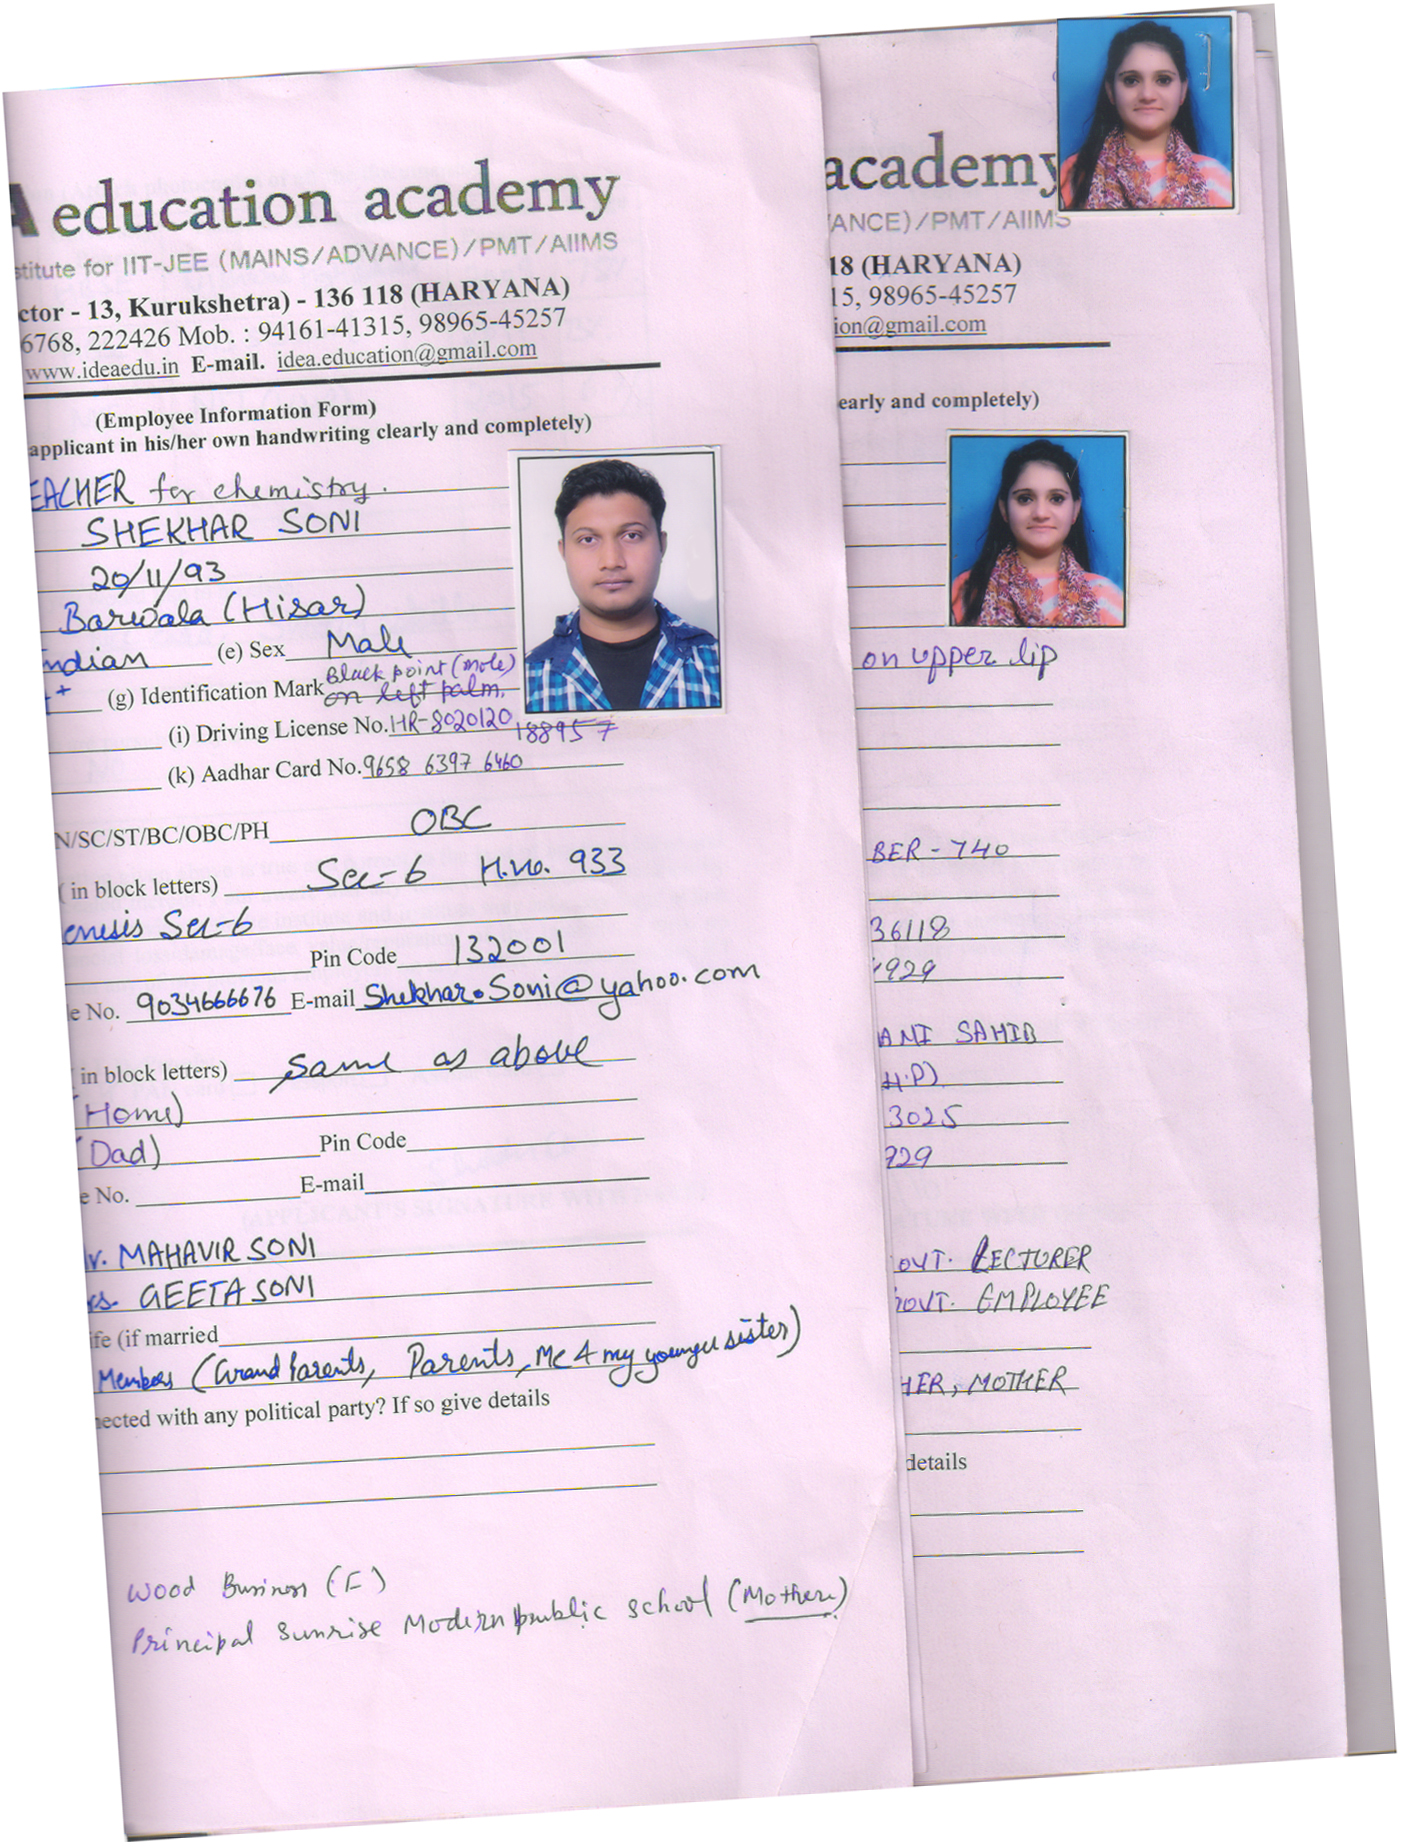 A education academy
stitute for IIT-JEE (MAINS/ADVANCE)/PMT/AIIMS
ctor - 13, Kurukshetra) - 136 118 (HARYANA)
6768, 222426 Mob. : 94161-41315, 98965-45257
www.ideaedu.in E-mail. idea.education@gmail.com
(Employee Information Form)
applicant in his/her own handwriting clearly and completely)
EACHER for chemistry.
SHEKHAR SONI
20/11/93
Barwala (Hisar)
ndian (e) Sex Male
+ (g) Identification Mark Black point (mole) on left palm.
(i) Driving License No. HR-8020120188957
(k) Aadhar Card No. 9658 6397 6460
N/SC/ST/BC/OBC/PH OBC
( in block letters) Sec-6 H.no. 933
enesis Sec-6
Pin Code 132001
e No. 9034666676 E-mail Shekhar.Soni@yahoo.com
in block letters) same as above
(Home)
(Dad) Pin Code
e No. E-mail
r. MAHAVIR SONI
rs. GEETA SONI
ife (if married
Members (Grand Parents, Parents, Me & my younger sister)
nected with any political party? If so give details
Wood Business (F)
Principal Sunrise Modern public school (Mother)
academy
ANCE)/PMT/AIIMS
18 (HARYANA)
15, 98965-45257
ion@gmail.com
early and completely)
on upper lip
BER - 740
36118
929
ANI SAHIB
H.P)
3025
929
OVT. LECTURER
GOVT. EMPLOYEE
HER, MOTHER
details